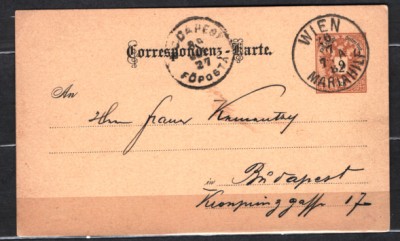 WIEN
MARIAHILF
BUDAPEST
FŐPOSTA
27
Correspondenz-Karte.
An
Herrn Franz
in Budapest
Kronprinzgasse 17